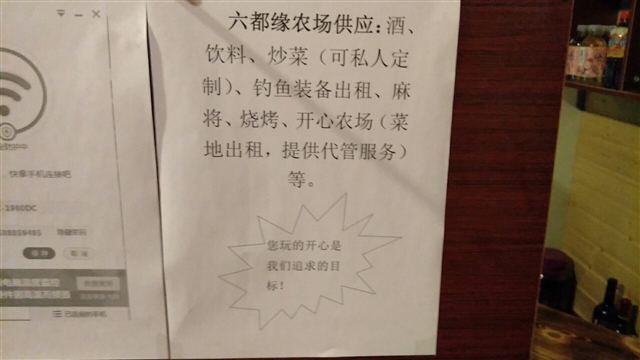 六都缘农场供应：酒、
饮料、炒菜（可私人定
制）、钓鱼装备出租、麻
将、烧烤、开心农场（菜
地出租，提供代管服务）
等。
您玩的开心是
我们追求的目
标！
快拿手机连接吧
-1960DC
隐藏密码
保存
取消
已连接的手机